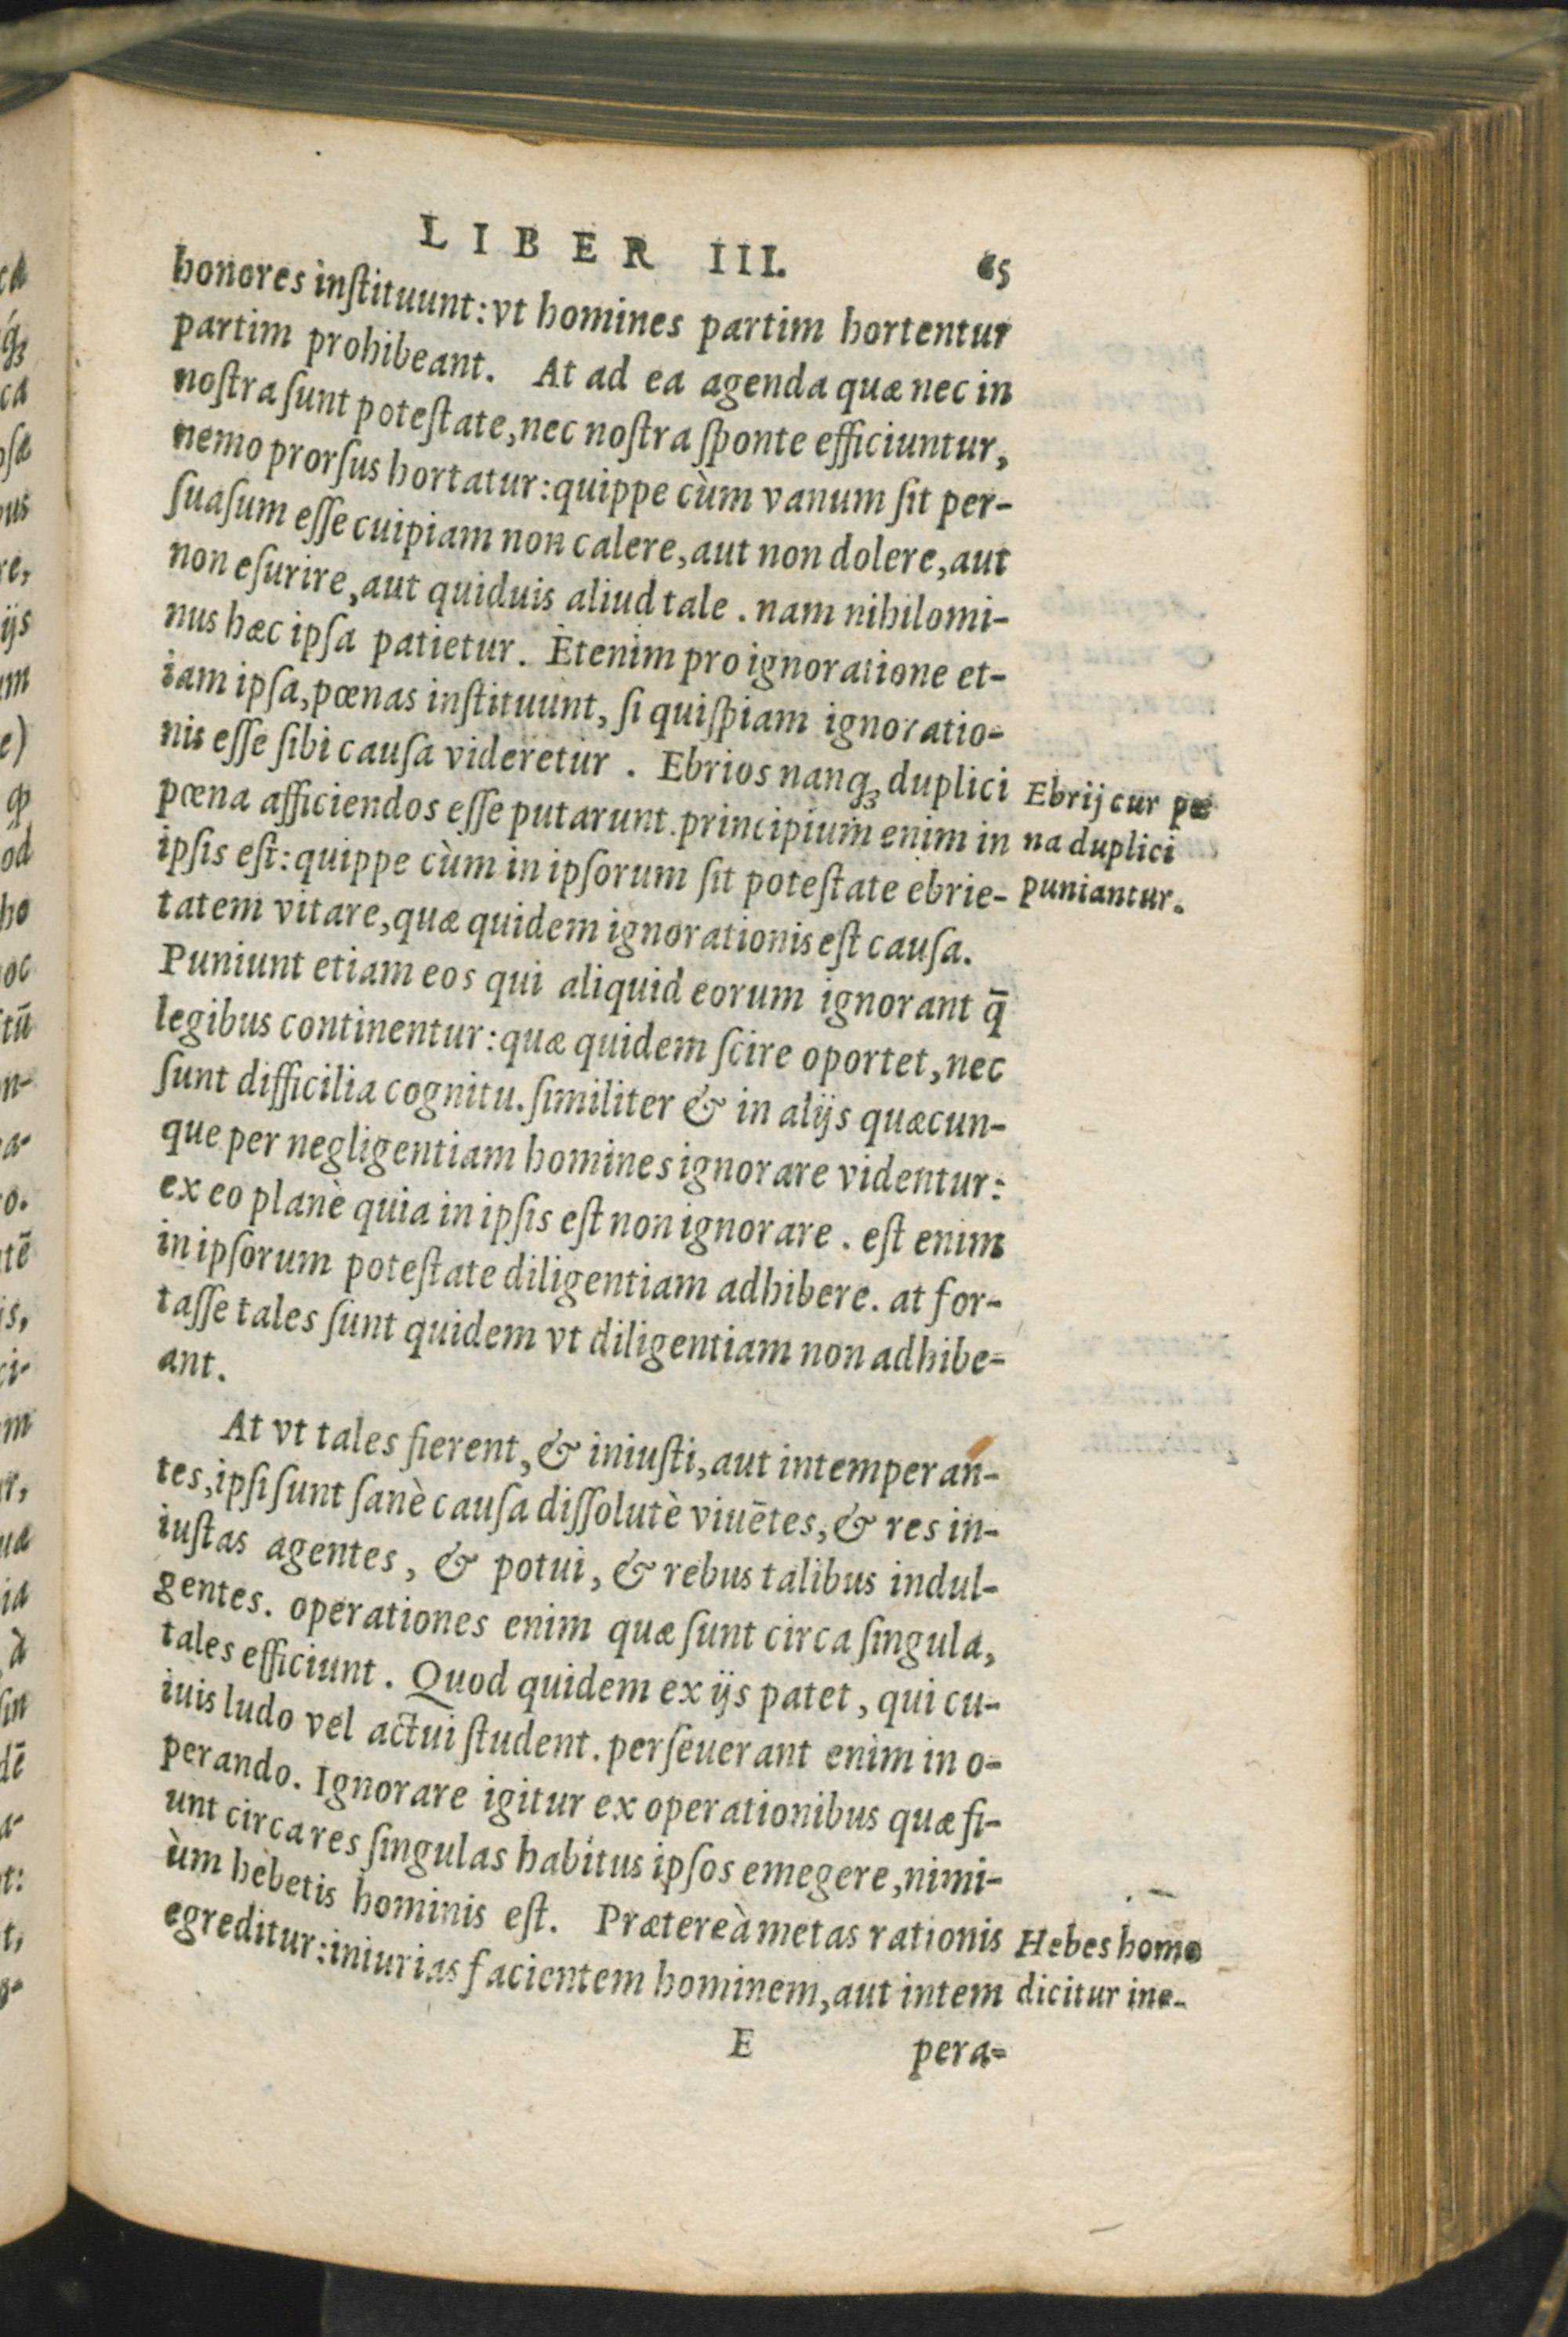 LIBER III. 65
honores inſtituunt: vt homines partim hortentur
partim prohibeant. At ad ea agenda quæ nec in
noſtra ſunt poteſtate, nec noſtra ſponte efficiuntur,
nemo prorſus hortatur: quippe cùm vanum ſit per-
ſuaſum eſſe cuipiam non calere, aut non dolere, aut
non eſurire, aut quiduis aliud tale. nam nihilomi-
nus hæc ipſa patietur. Etenim pro ignoratione et-
iam ipſa, pœnas inſtituunt, ſi quiſpiam ignoratio-
nis eſſe ſibi cauſa videretur. Ebrios nanqꝫ duplici
pœna afficiendos eſſe putarunt. principium enim in
ipſis eſt: quippe cùm in ipſorum ſit poteſtate ebrie-
tatem vitare, quæ quidem ignorationis eſt cauſa.
Puniunt etiam eos qui aliquid eorum ignorant q̄
legibus continentur: quæ quidem ſcire oportet, nec
ſunt difficilia cognitu. ſimiliter & in alijs quæcun-
que per negligentiam homines ignorare videntur:
ex eo planè quia in ipſis eſt non ignorare. eſt enim
in ipſorum poteſtate diligentiam adhibere. at for-
taſſe tales ſunt quidem vt diligentiam non adhibe-
ant.
At vt tales fierent, & iniuſti, aut intemperan-
tes, ipſi ſunt ſanè cauſa diſſolutè viuētes, & res in-
iuſtas agentes, & potui, & rebus talibus indul-
gentes. operationes enim quæ ſunt circa ſingula,
tales efficiunt. Quod quidem ex ijs patet, qui cu-
iuis ludo vel actui ſtudent. perſeuerant enim in o-
perando. Ignorare igitur ex operationibus quæ fi-
unt circa res ſingulas habitus ipſos emegere, nimi-
ùm hebetis hominis eſt. Prætereà metas rationis
egreditur: iniurias facientem hominem, aut intem
E pera-
Ebrij cur pœ
na duplici
puniantur.
Hebes homo
dicitur ine-